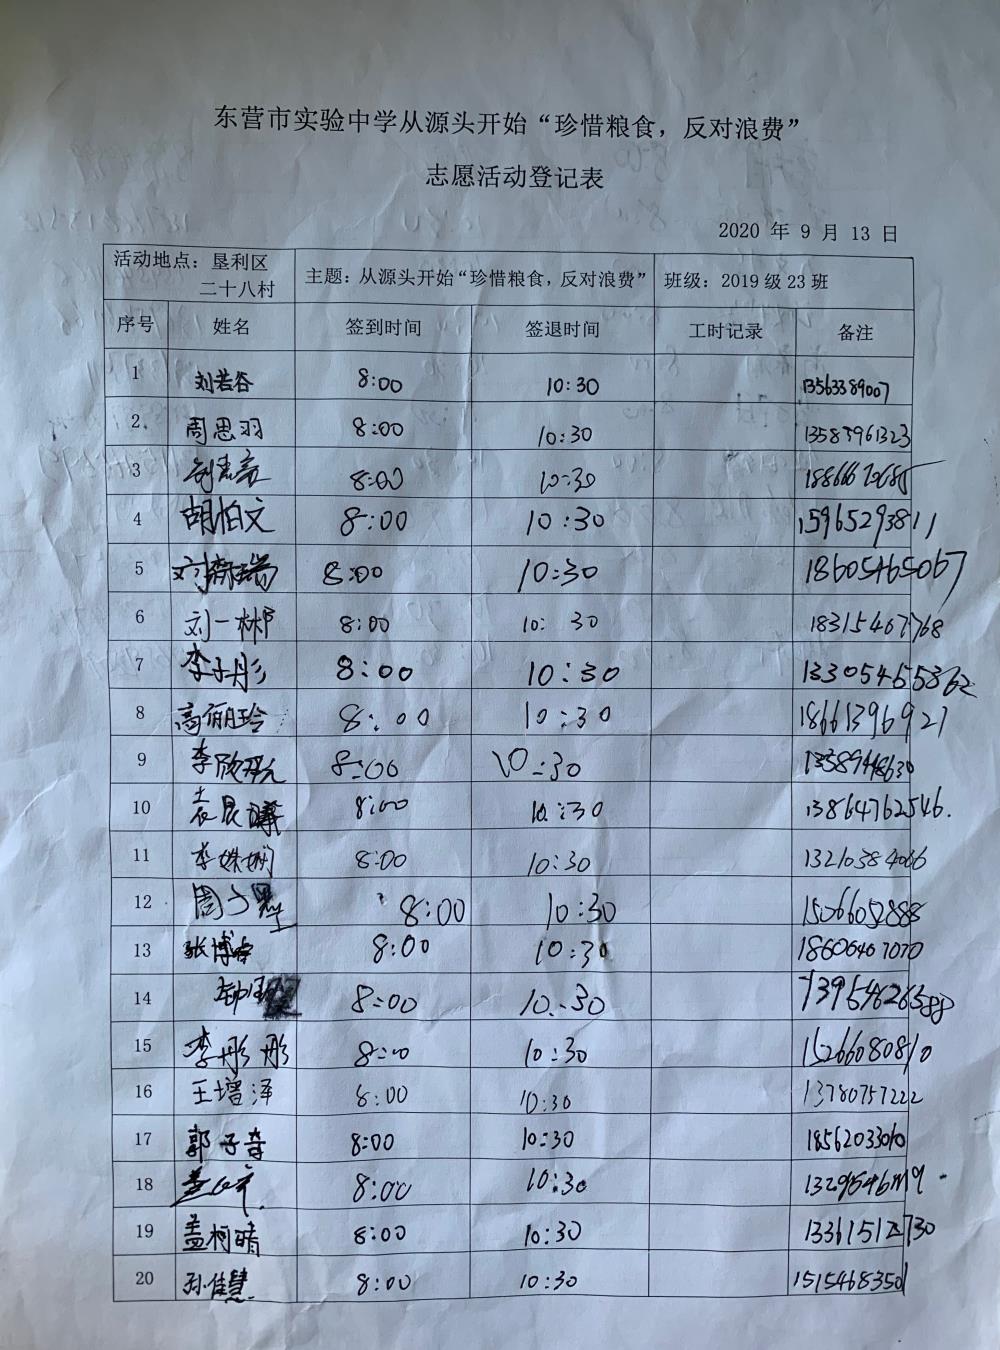 东营市实验中学从源头开始“珍惜粮食，反对浪费”
志愿活动登记表
2020 年 9 月 13 日
活动地点：垦利区 二十八村 主题：从源头开始“珍惜粮食，反对浪费” 班级：2019级23班
序号 姓名 签到时间 签退时间 工时记录 备注
1 刘若谷 8:00 10:30 13563389007
2 周思羽 8:00 10:30 13583961323
3 8:00 10:30
4 胡怕文 8:00 10:30 15965293811
5 8:00 10:30 18605465067
6 刘一彬 8:00 10: 30 18315467768
7 李子彤 8:00 10:30 133054655362
8 高俪玲 8:00 10:30 18661396921
9 8:00 10:30 13589448630
10 袁晨曦 8:00 10:30 13864762546.
11 李姝娴 8:00 10:30 13210384066
12 8:00 10:30 15066052888
13 8:00 10:30 18606467070
14 8:00 10:30
15 李彤彤 8:00 10:30 15266080810
16 王增泽 8:00 10:30 13780757222
17 郭子奇 8:00 10:30 18562033010
18 8:00 10:30
19 孟柯晴 8:00 10:30
20 孙佳慧 8:00 10:30 15154683501